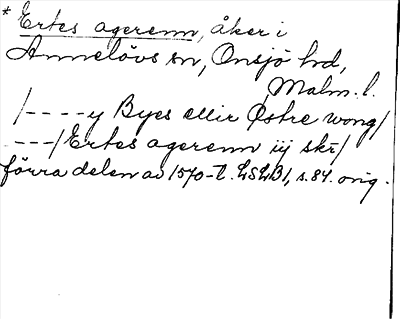 * Ertes agerenn, åker i
Annelövs sn, Onsjö hd,
Malm. l.
/----y Byes ellir Østre wong/
---/Ertes agerenn iij skr/
förra delen av 1570-t. LSLB1, s.84. orig.